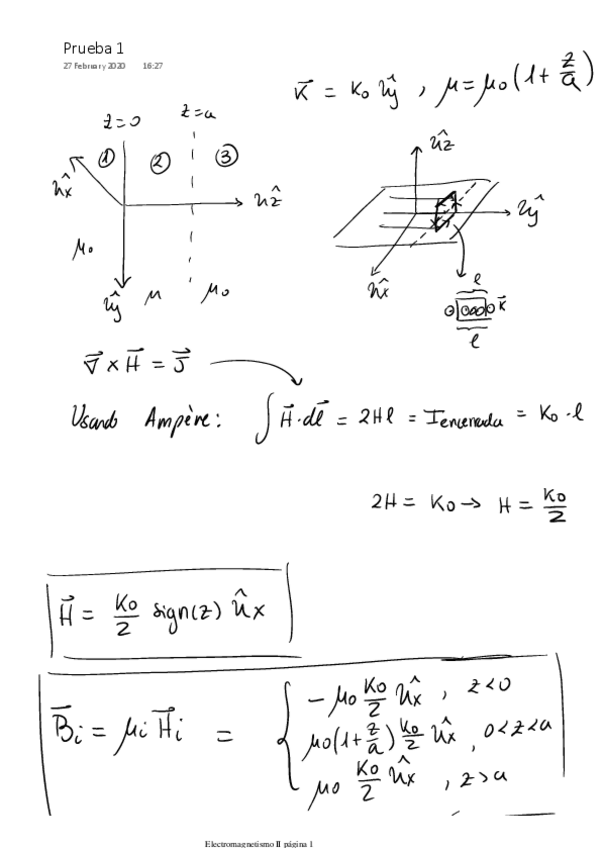 Prueba 1
27 February 2020 16:27
K⃗ = K₀ ûy , μ = μ₀ (1 + z/a)
z=0 z=a
① ② ③
ûx
ûz
μ₀
ûy μ μ₀
ûz
ûy
ûx
l
K⃗
l
∇⃗ × H⃗ = J⃗
Usando Ampère: ∫ H⃗ · dl⃗ = 2Hl = Iencerrada = K₀ · l
2H = K₀ → H = K₀/2
H⃗ = K₀/2 sign(z) ûx
B⃗i = μi H⃗i = { - μ₀ K₀/2 ûx , z<0
μ₀(1+z/a) K₀/2 ûx , 0<z<a
μ₀ K₀/2 ûx , z>a
Electromagnetismo II página 1